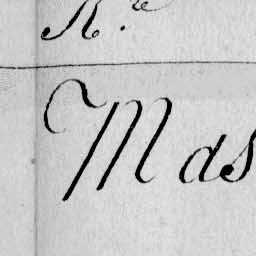 R.e
Mas